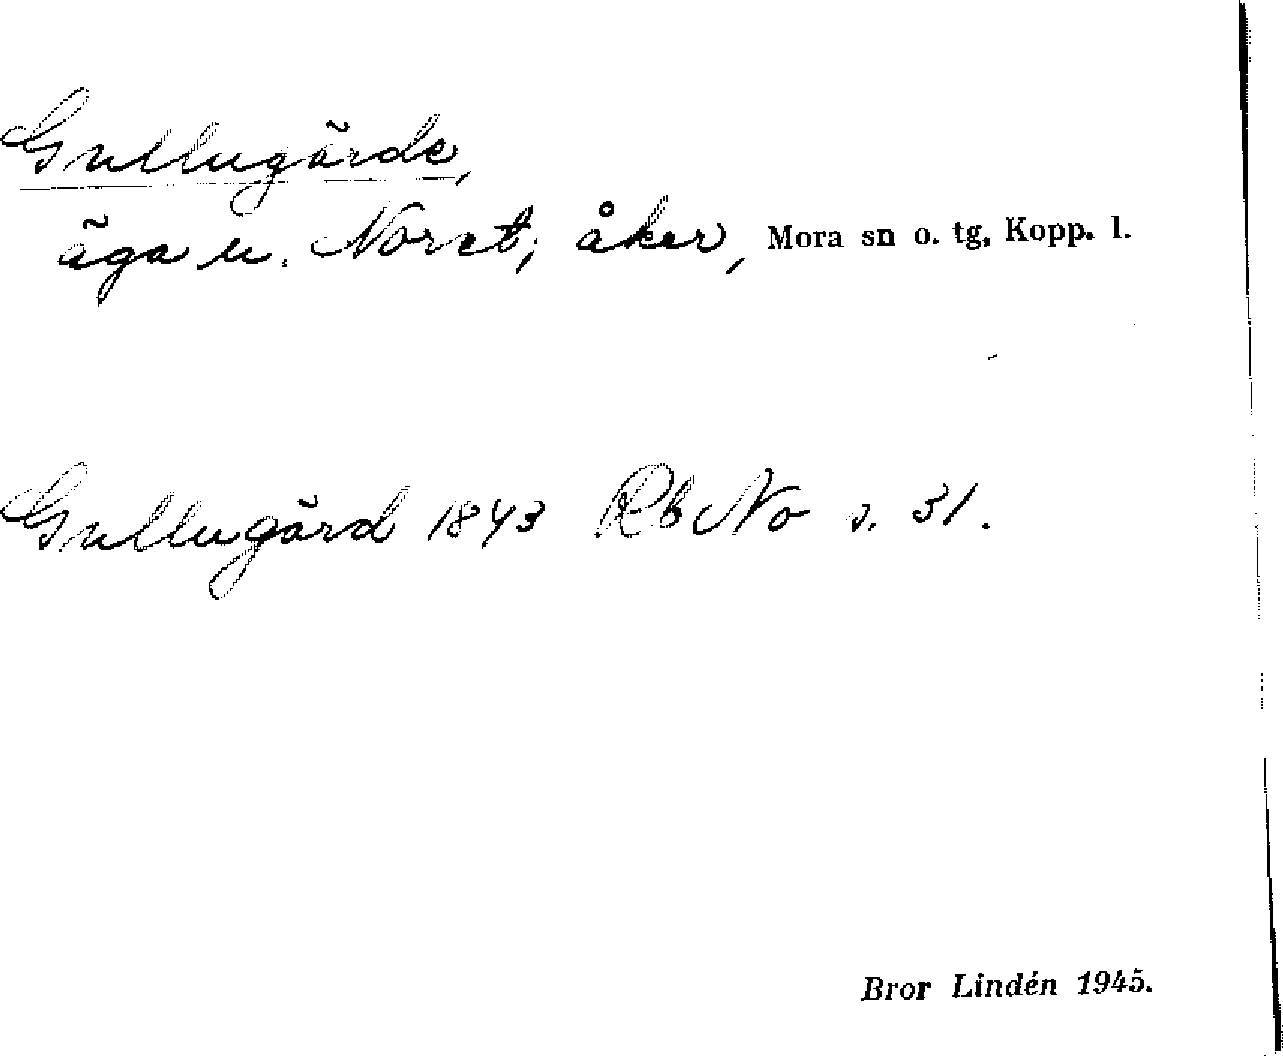 Gullugärde,
äga u. Noret, åker, Mora sn o. tg, Kopp. l.
Gullugärd 1843 Rb No s. 31.
Bror Lindén 1945.